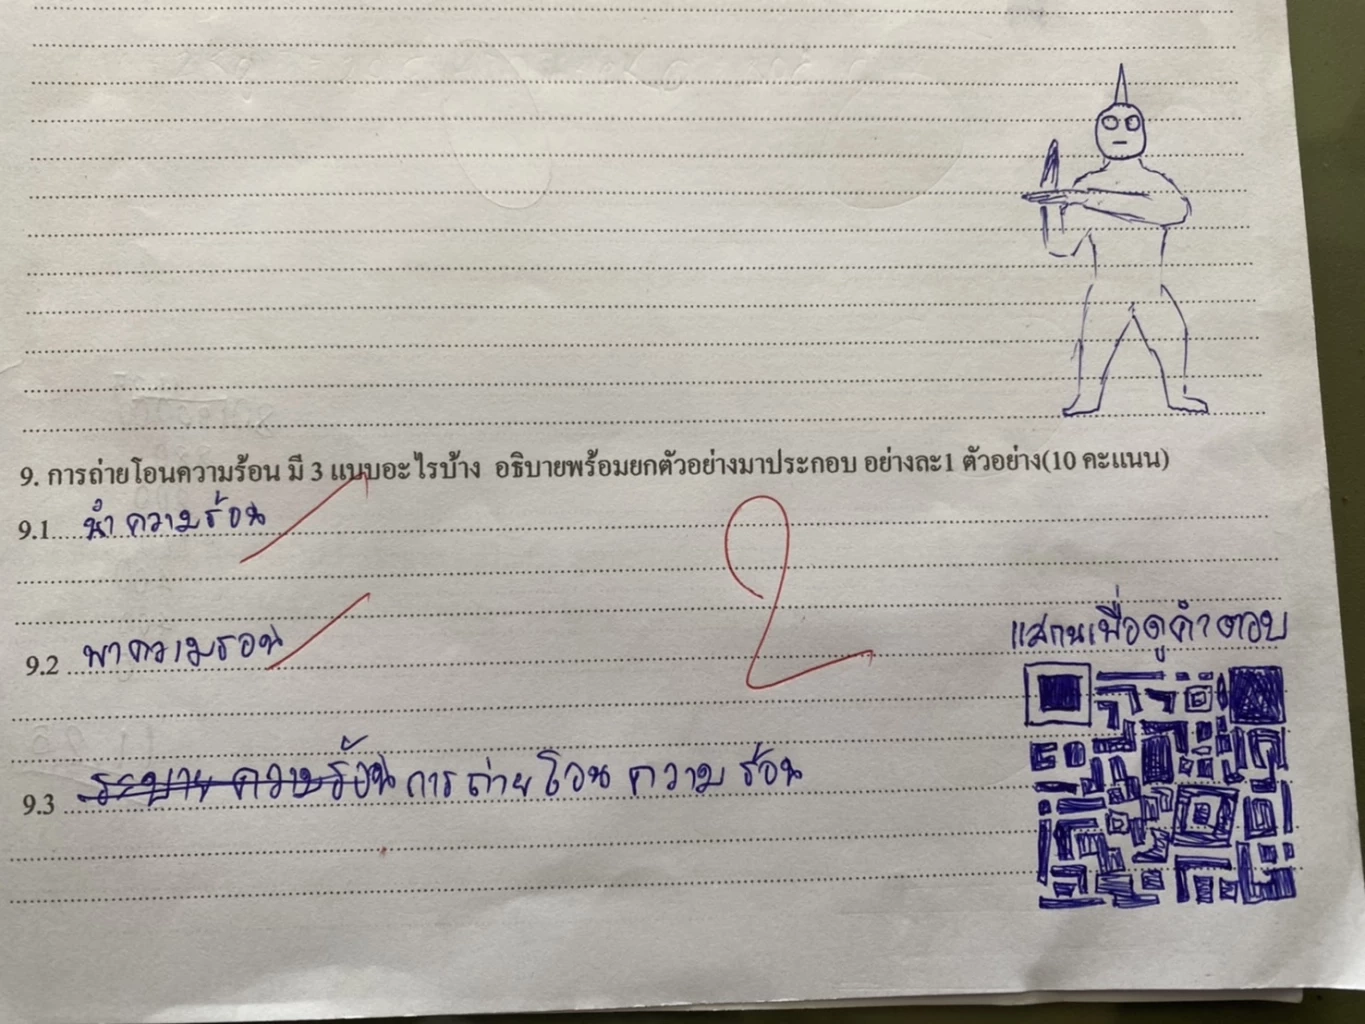 9. การถ่ายโอนความร้อน มี 3 แบบอะไรบ้าง อธิบายพร้อมยกตัวอย่างมาประกอบ อย่างละ1 ตัวอย่าง(10 คะแนน)
9.1 นำความร้อน
2
9.2 พาความรอน
แสกนเพื่อดูคำตอบ
9.3 ระบายความร้อน การถ่ายโอนความร้อน